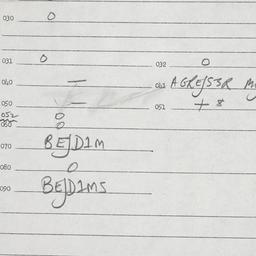 030 0
031 0 032 0
040 — 041 AGRE/S3R
050 — 051 + 8
052 0
060 0
070 BE/D1M
080 0
090 BE/D1MS